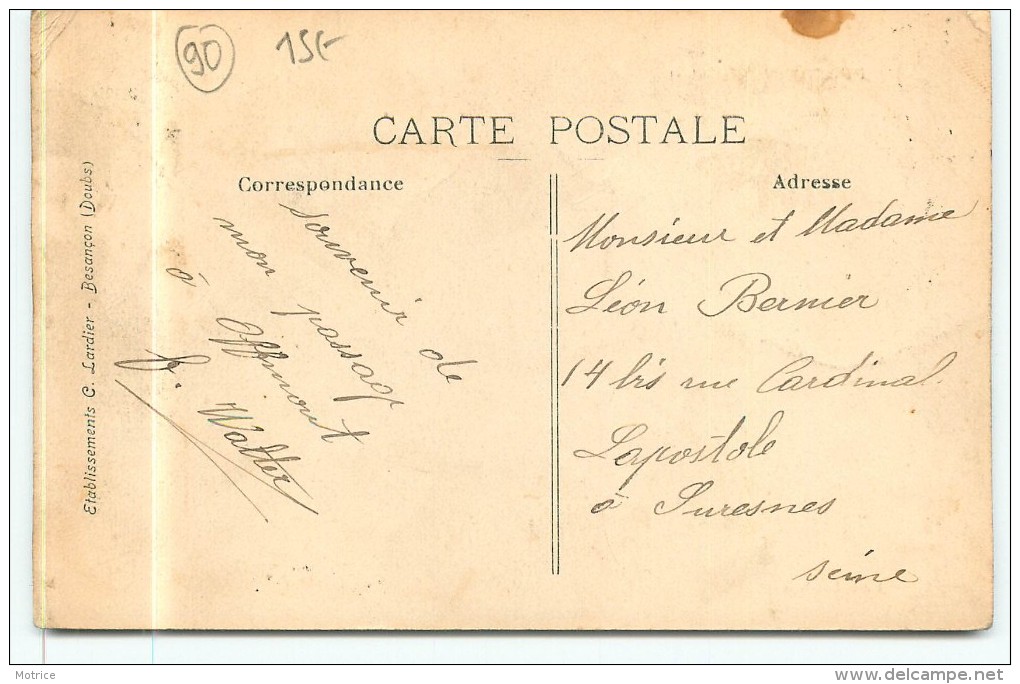 90
15€
CARTE POSTALE
Correspondance
Adresse
Souvenir de
mon passage
à Offemont
Walter
Monsieur et Madame
Léon Bernier
14 bis rue Cardinal
Lapostole
à Suresnes
Seine
Etablissements C. Lardier - Besançon (Doubs)
Motrice
www.delcampe.net